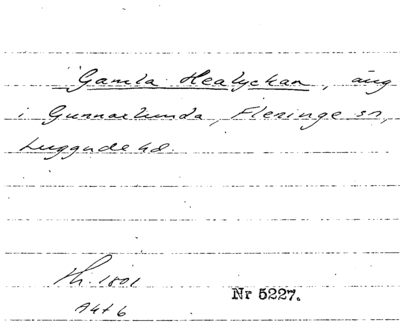 Gamla Healyckan, äng
i Gunnarlunda, Fleninge sn,
Luggude hd.
Sh. 1801
Akt 6
Nr 5227.